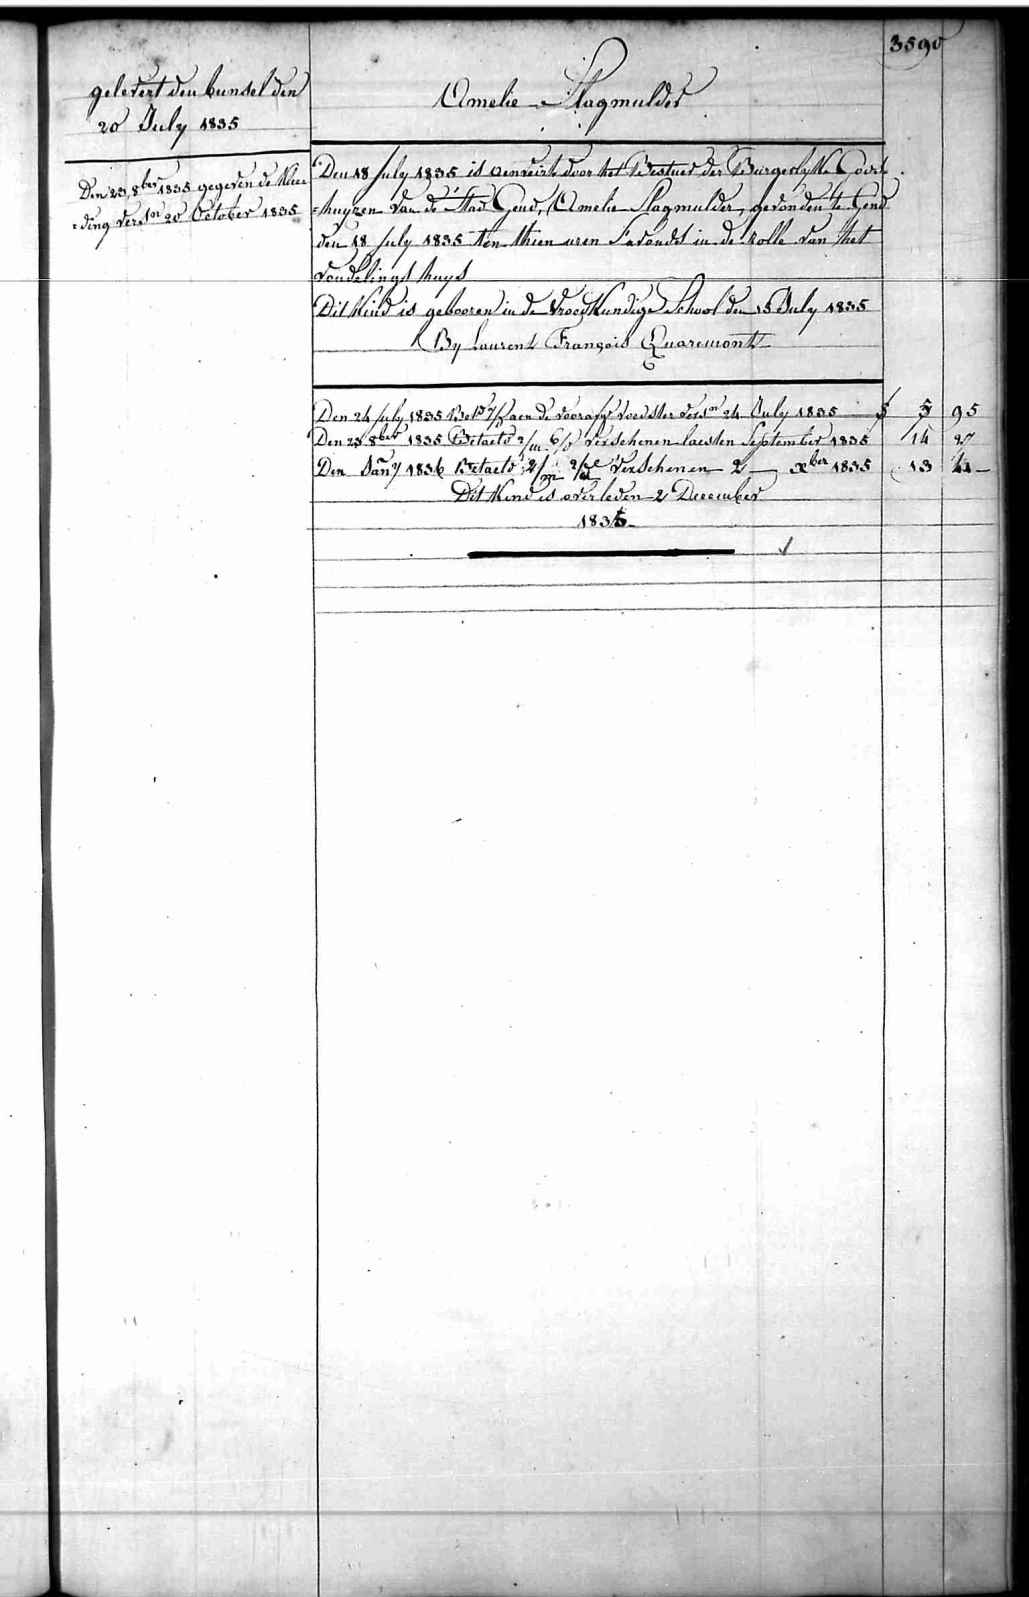 3590
gelevert den bunsel den
20 July 1835
Amelie Slagmulder
Den 23 8ber 1835 gegeven de klee=
=ding vers.n 20 October 1835
Den 18 July 1835 is aenveirt door het Bestuer der Burgerlyke Gods
=huyzen van de Stad Gend, Amelie Slagmulder, gevonden te Gend
den 18 July 1835 ten thien uren s'avonds in de rolle van het
vondelings huys
Dit Kind is gebooren in de Vroedkundige School den 15 July 1835
By Laurent François Quaremont
Den 24 July 1835 Bet.d 7/ aen de voorafge voedster vers.n 24 July 1835 5 95
Den 23 8ber 1835 Betaeld 2/m 6/d verschenen laesten September 1835 14 27
Den Jan.y 1836 Betaeld 2/m 2/d verschenen 2 xber 1835 13 4
Dit Kind is overleden 2 December
1835